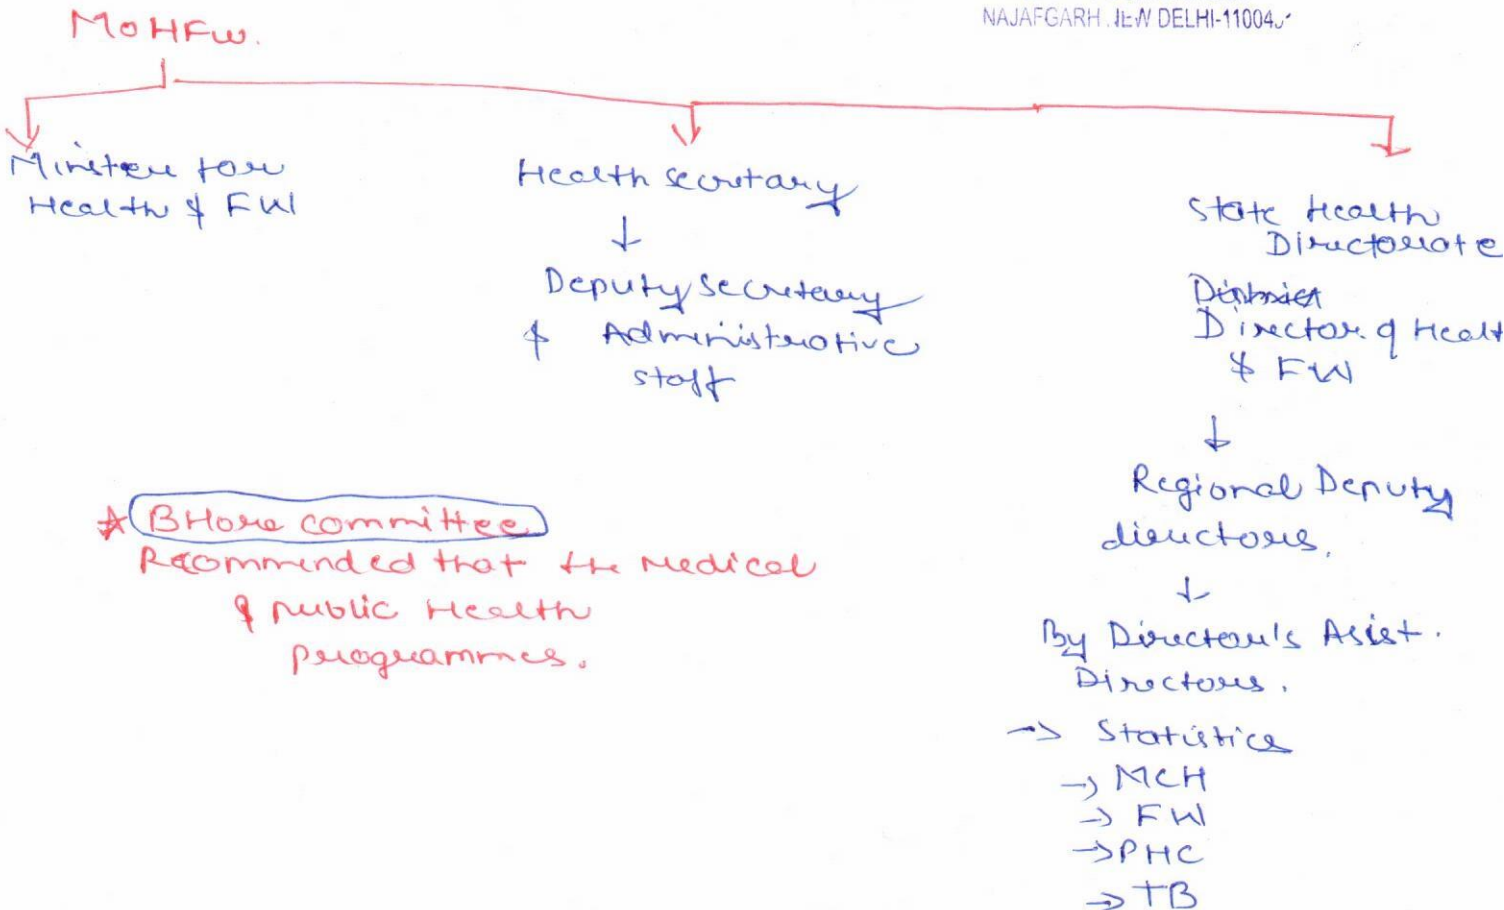 NAJAFGARH NEW DELHI-11004
MOHFW.
Minster for
Health & FW
Health secretary
Deputy secretary
& Administrative
staff
State Health
Directorate
District
Director of Healt
& FW
Regional Deputy
directors.
By Director's Asist.
Directors.
→ Statistics
→ MCH
→ FW
→ PHC
→ TB
* BHore committee
Recommended that the Medical
& public Health
programmes.